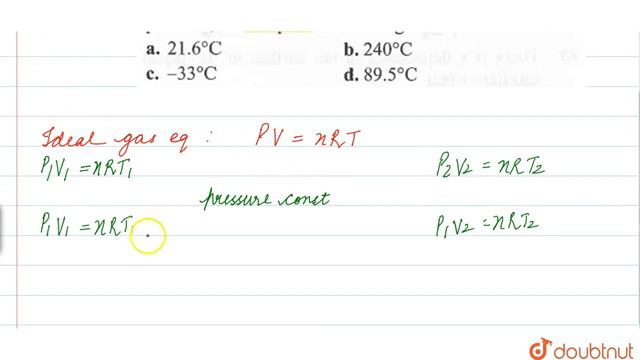 a. 21.6°C b. 240°C
c. –33°C d. 89.5°C
Ideal gas eq : PV = nRT
P₁V₁ = nRT₁ P₂V₂ = nRT₂
pressure const
P₁V₁ = nRT₁ P₁V₂ = nRT₂
doubtnut